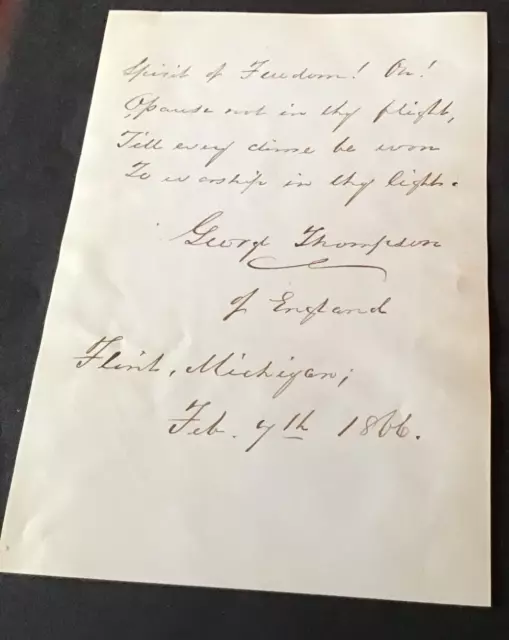 Spirit of Freedom! On!
Oh pause not in thy flight,
Till every clime be won
To worship in thy light.
Geor Thompson
of England
Flint, Michigan;
Feb. 7th 1866.